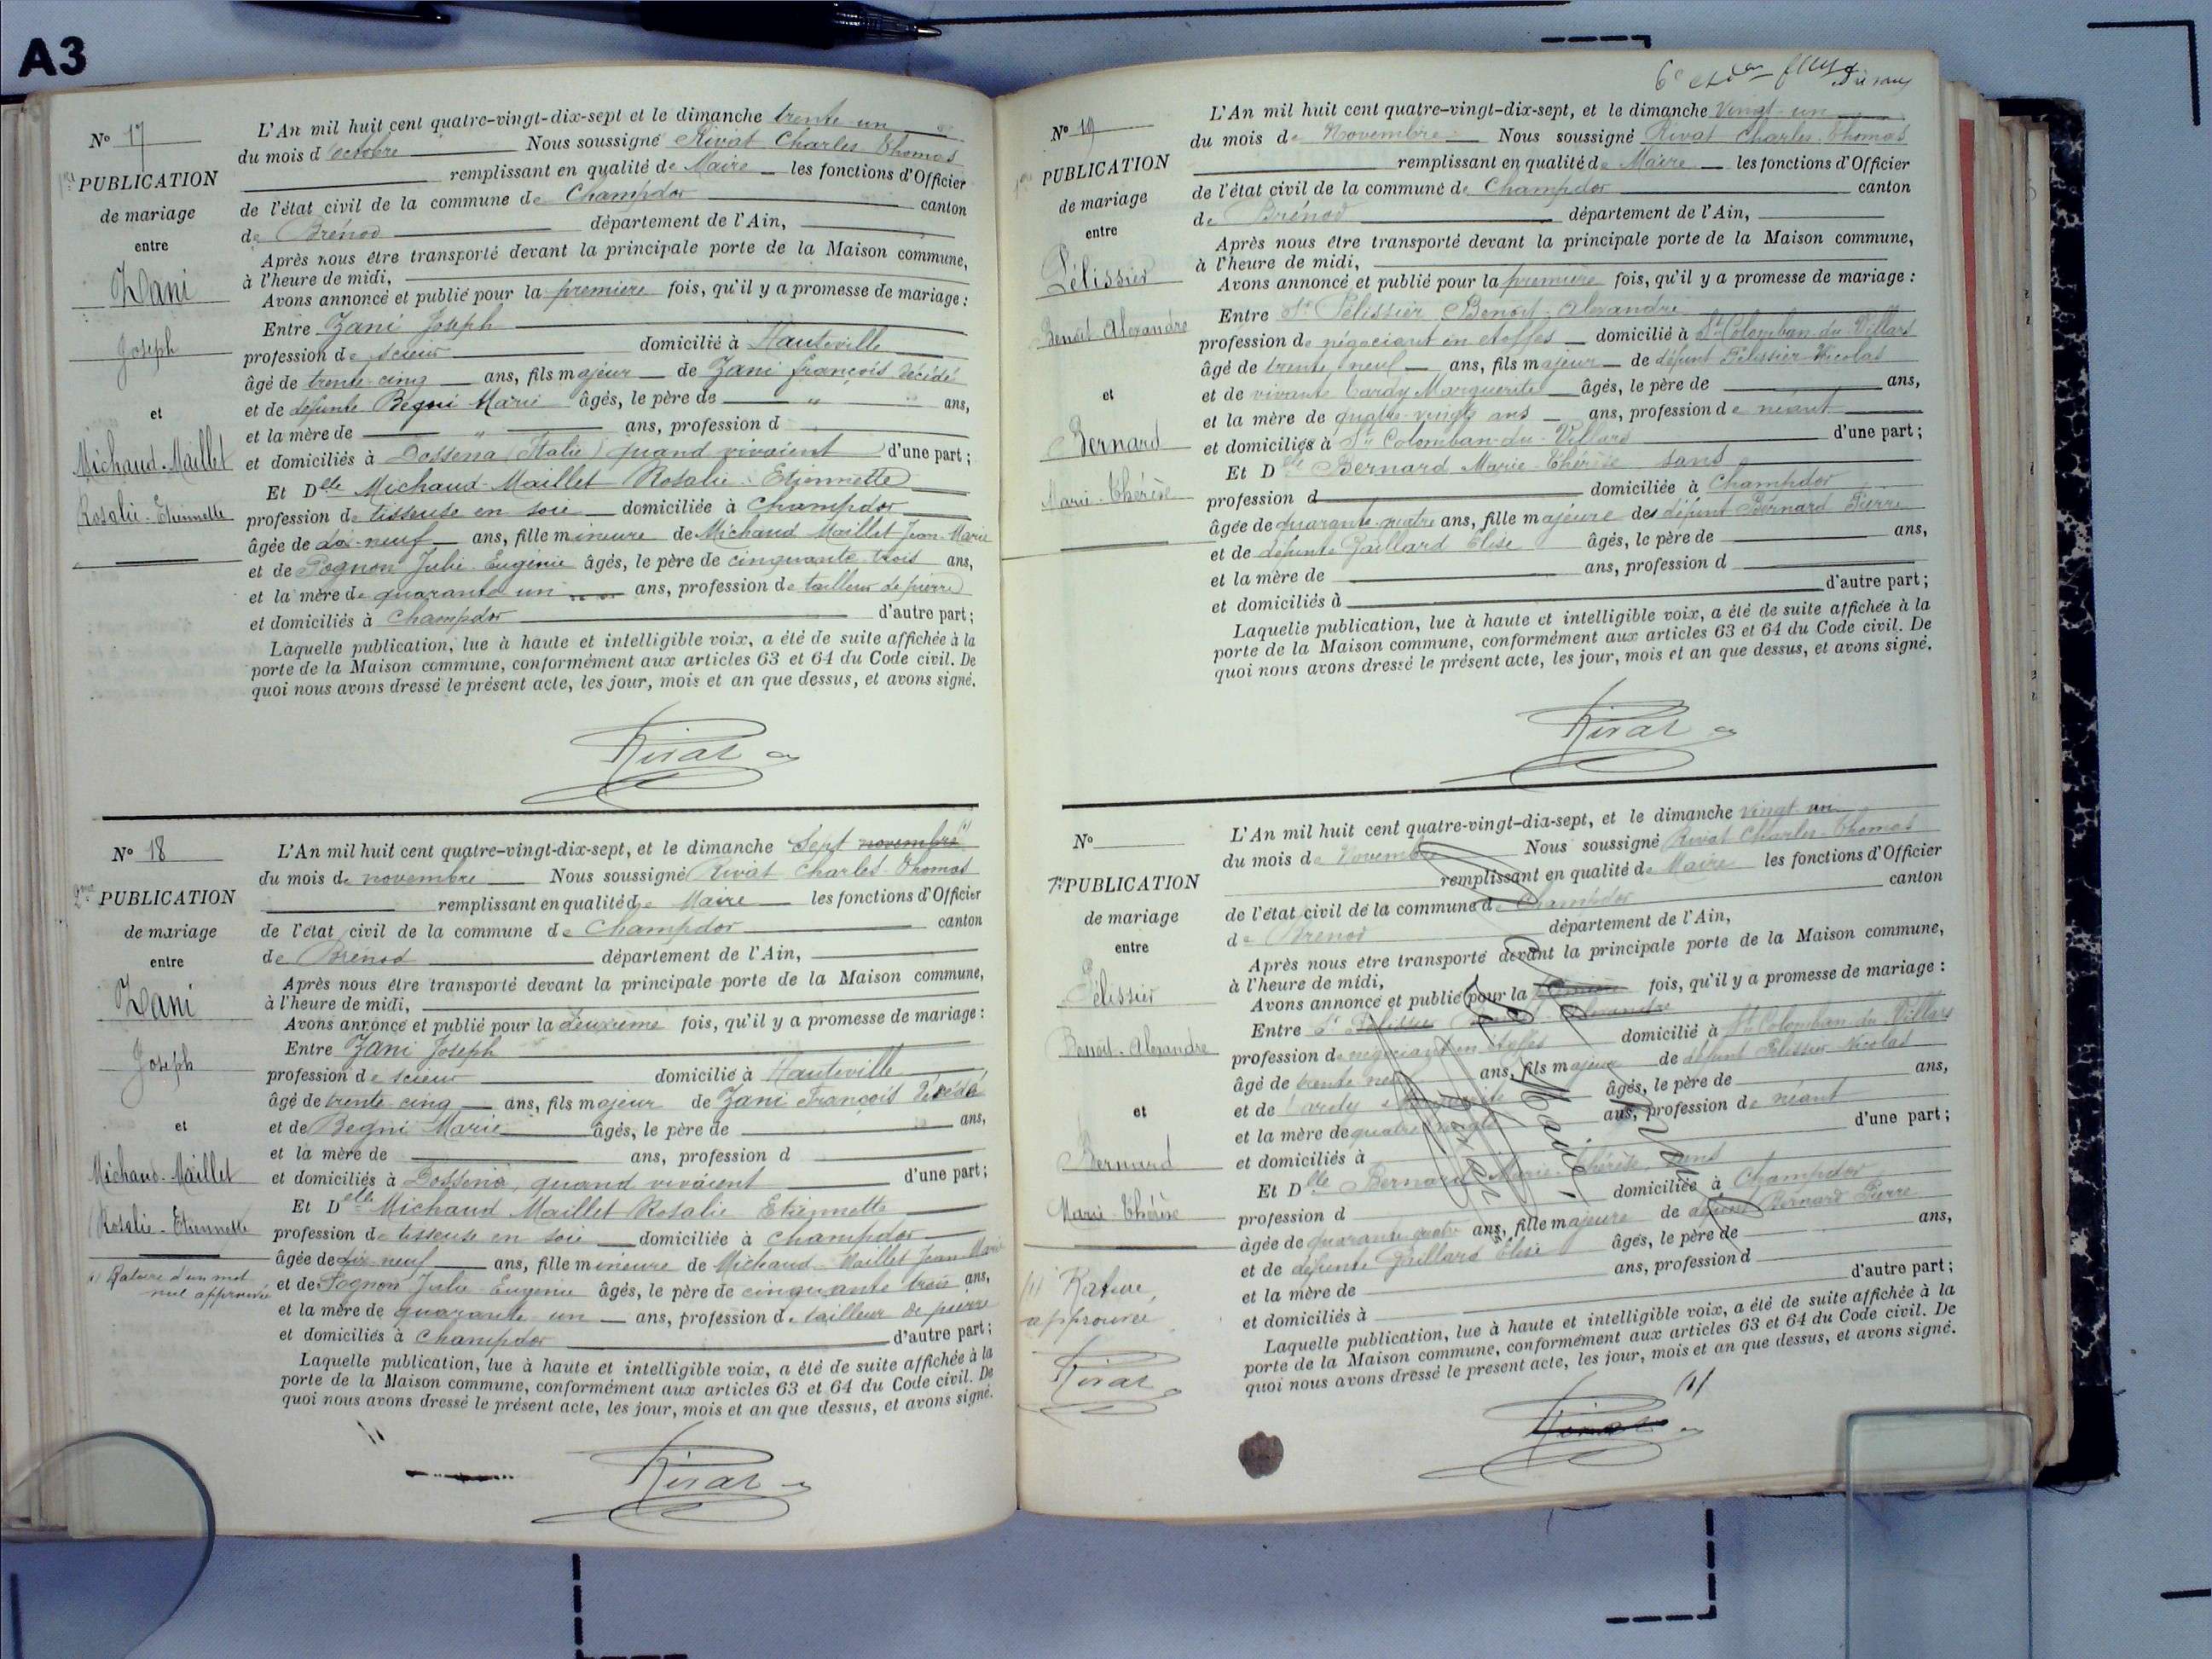 A3
N° 17
1ère PUBLICATION
de mariage
entre
Zani
Joseph
et
Michaud-Maillet
Rosalie-Etiennette
L'An mil huit cent quatre-vingt-dix-sept et le dimanche trente-un
du mois d'octobre Nous soussigné Rivat Charles-Thomas
remplissant en qualité de Maire les fonctions d'Officier
de l'état civil de la commune de Champdor canton
de Brénod département de l'Ain,
Après nous être transporté devant la principale porte de la Maison commune,
à l'heure de midi,
Avons annoncé et publié pour la première fois, qu'il y a promesse de mariage :
Entre Zani Joseph
profession de scieur domicilié à Hauteville
âgé de trente-cinq ans, fils majeur de Zani François décédé
et de défunte Begni Marie âgés, le père de " ans,
et la mère de " ans, profession d
et domiciliés à Dossena (Italie) quand vivaient d'une part ;
Et Delle Michaud-Maillet Rosalie-Etiennette
profession de tisseuse en soie domiciliée à Champdor
âgée de dix-neuf ans, fille mineure de Michaud Maillet Jean-Marie
et de Pognon Julie-Eugénie âgés, le père de cinquante-trois ans,
et la mère de quarante un ans, profession de tailleur de pierre
et domiciliés à Champdor d'autre part ;
Laquelle publication, lue à haute et intelligible voix, a été de suite affichée à la
porte de la Maison commune, conformément aux articles 63 et 64 du Code civil. De
quoi nous avons dressé le présent acte, les jour, mois et an que dessus, et avons signé.
Rivat
N° 18
2me PUBLICATION
de mariage
entre
Zani
Joseph
et
Michaud-Maillet
Rosalie-Etiennette
(1) Rature d'un mot
nul approuvée
L'An mil huit cent quatre-vingt-dix-sept, et le dimanche Sept novembre (1)
du mois de novembre Nous soussigné Rivat Charles-Thomas
remplissant en qualité de Maire les fonctions d'Officier
de l'état civil de la commune de Champdor canton
de Brénod département de l'Ain,
Après nous être transporté devant la principale porte de la Maison commune,
à l'heure de midi,
Avons annoncé et publié pour la deuxième fois, qu'il y a promesse de mariage :
Entre Zani Joseph
profession de scieur domicilié à Hauteville
âgé de trente-cinq ans, fils majeur de Zani François décédé
et de Begni Marie âgés, le père de ans,
et la mère de ans, profession d
et domiciliés à Dossena, quand vivaient d'une part ;
Et Delle Michaud Maillet Rosalie Etiennette
profession de tisseuse en soie domiciliée à Champdor
âgée de dix-neuf ans, fille mineure de Michaud-Maillet Jean-Marie
et de Pognon Julie-Eugénie âgés, le père de cinquante trois ans,
et la mère de quarante-un ans, profession de tailleur de pierre
et domiciliés à Champdor d'autre part ;
Laquelle publication, lue à haute et intelligible voix, a été de suite affichée à la
porte de la Maison commune, conformément aux articles 63 et 64 du Code civil. De
quoi nous avons dressé le présent acte, les jour, mois et an que dessus, et avons signé.
Rivat
6e et
N° 19
1ère PUBLICATION
de mariage
entre
Pélissier
Benoit-Alexandre
et
Bernard
Marie-Thérèse
L'An mil huit cent quatre-vingt-dix-sept, et le dimanche Vingt-un
du mois de Novembre Nous soussigné Rivat Charles-Thomas
remplissant en qualité de Maire les fonctions d'Officier
de l'état civil de la commune de Champdor canton
de Brénod département de l'Ain,
Après nous être transporté devant la principale porte de la Maison commune,
à l'heure de midi,
Avons annoncé et publié pour la première fois, qu'il y a promesse de mariage :
Entre Sr Pélissier Benoit-Alexandre
profession de négociant en étoffes domicilié à St Colomban-du-Villars
âgé de trente neuf ans, fils majeur de défunt Pélissier Nicolas
et de vivante Marguerite âgés, le père de ans,
et la mère de quatre-vingts ans ans, profession de néant
et domiciliés à St Colomban-du-Villars d'une part ;
Et Delle Bernard Marie-Thérèse sans
profession d domiciliée à Champdor
âgée de quarante-quatre ans, fille majeure des défunt Bernard Pierre
et de défunte Gaillard Elise âgés, le père de ans,
et la mère de ans, profession d
et domiciliés à d'autre part ;
Laquelle publication, lue à haute et intelligible voix, a été de suite affichée à la
porte de la Maison commune, conformément aux articles 63 et 64 du Code civil. De
quoi nous avons dressé le présent acte, les jour, mois et an que dessus, et avons signé.
Rivat
N°
1re PUBLICATION
de mariage
entre
Pélissier
Benoit-Alexandre
et
Bernard
Marie-Thérèse
(1) Rature
approuvée
Rivat
L'An mil huit cent quatre-vingt-dix-sept, et le dimanche vingt-un
du mois de Novembre Nous soussigné Rivat Charles-Thomas
remplissant en qualité de Maire les fonctions d'Officier
de l'état civil de la commune de Champdor canton
de Brénod département de l'Ain,
Après nous être transporté devant la principale porte de la Maison commune,
à l'heure de midi,
Avons annoncé et publié pour la première fois, qu'il y a promesse de mariage :
Entre Sr Pélissier Benoit-Alexandre domicilié à St Colomban-du-Villars
profession de négociant en étoffes
âgé de trente neuf ans, fils majeur de défunt Pélissier Nicolas
et de Marguerite âgés, le père de ans,
et la mère de quatre-vingts ans, profession de néant
et domiciliés à d'une part ;
Et Delle Bernard Marie-Thérèse, sans
profession d domiciliée à Champdor
âgée de quarante quatre ans, fille majeure de défunt Bernard Pierre
et de défunte Gaillard Elise âgés, le père de ans,
et la mère de ans, profession d
et domiciliés à d'autre part ;
Laquelle publication, lue à haute et intelligible voix, a été de suite affichée à la
porte de la Maison commune, conformément aux articles 63 et 64 du Code civil. De
quoi nous avons dressé le présent acte, les jour, mois et an que dessus, et avons signé.
(1)
Rivat
Nul
Le Maire,
Rivat